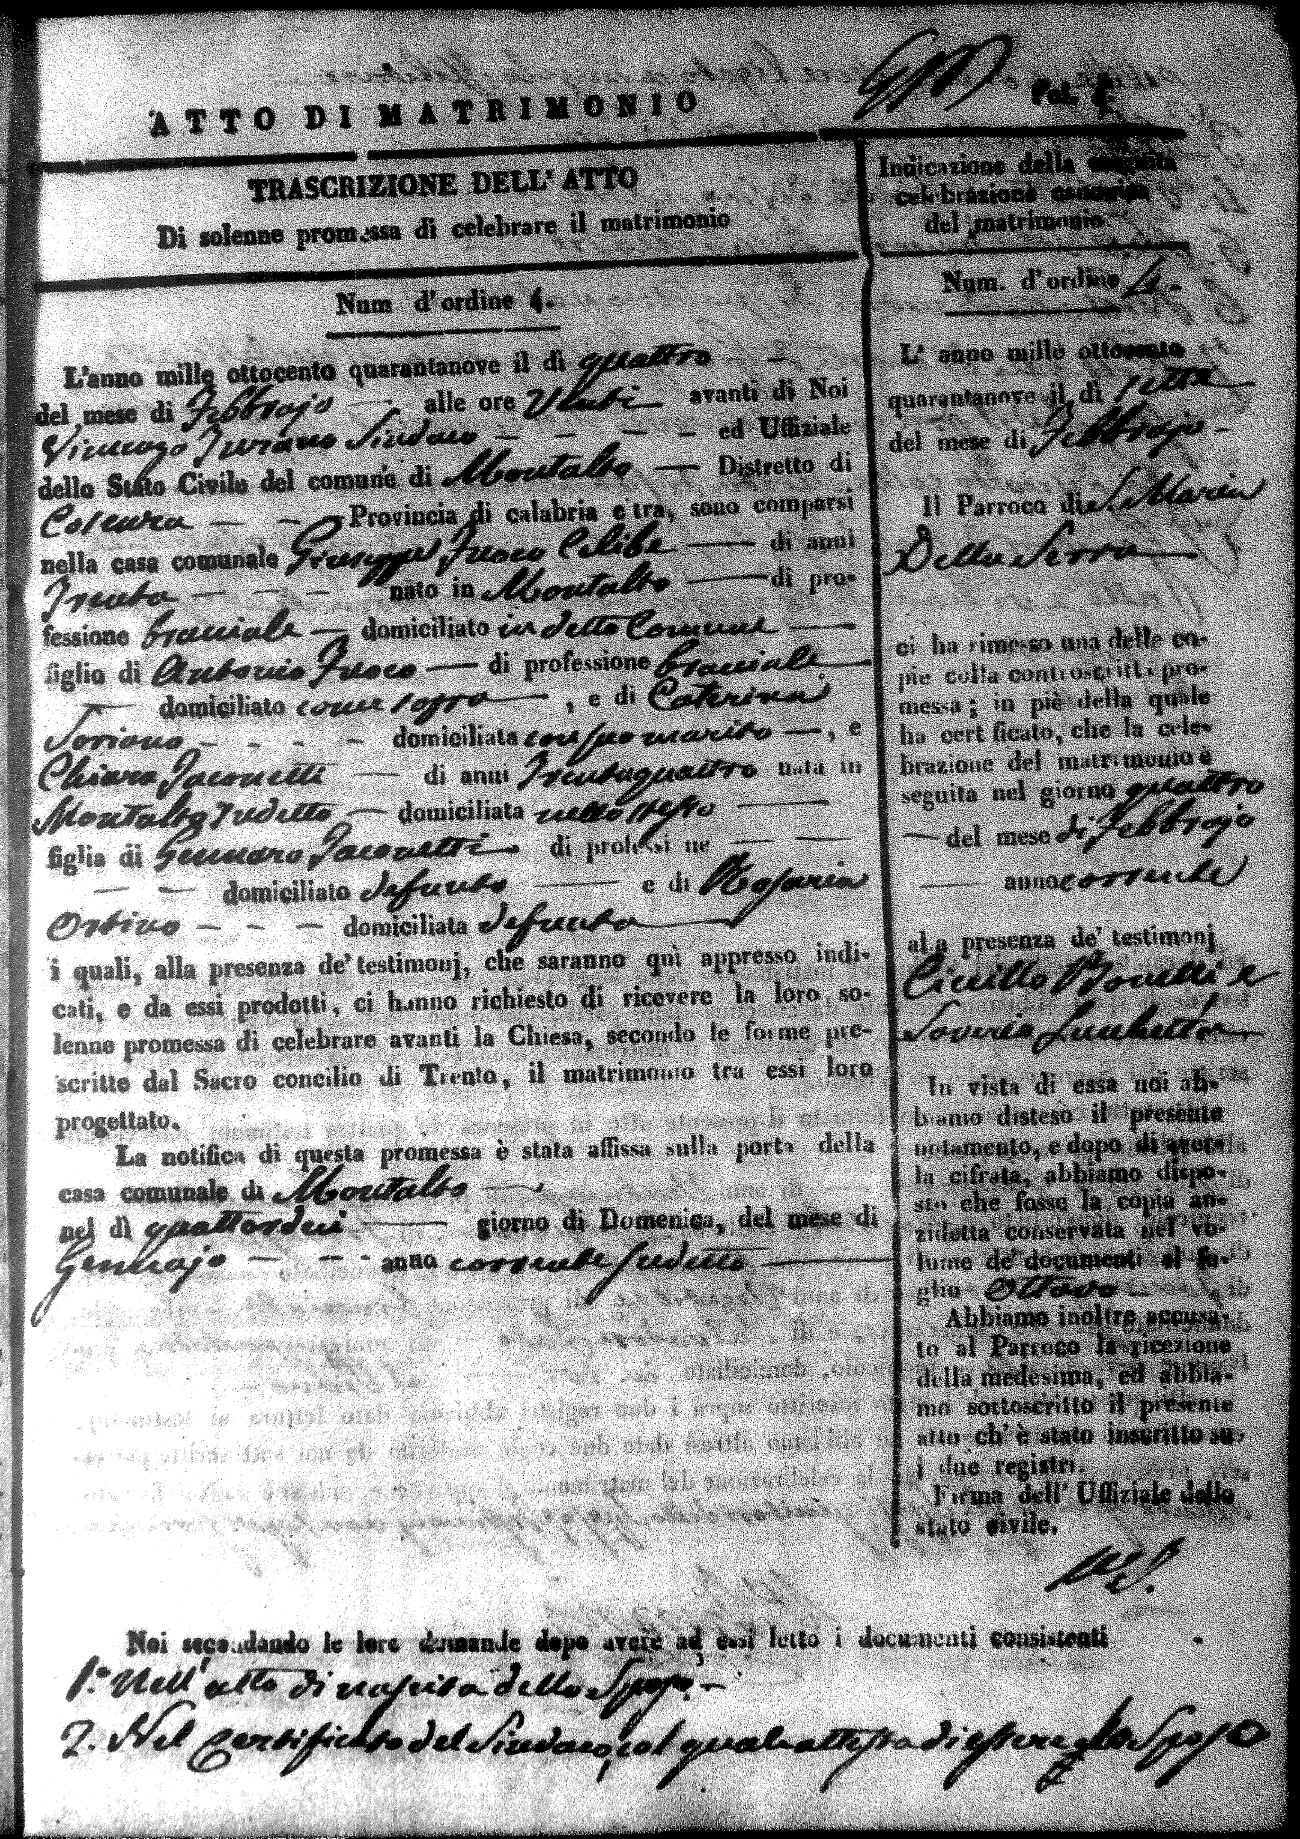 ATTO DI MATRIMONIO
Fol.
TRASCRIZIONE DELL' ATTO
Di solenne promessa di celebrare il matrimonio
Num d'ordine 4.
L'anno mille ottocento quarantanove il dì quattro
del mese di Febbrajo alle ore Venti avanti di Noi
Vincenzo Turano Sindaco ed Uffiziale
dello Stato Civile del comune di Montalto Distretto di
Cosenza Provincia di calabria citra, sono comparsi
nella casa comunale Giuseppe Fuoco Celibe di anni
Trenta nato in Montalto di pro-
fessione bracciale domiciliato in detto Comune
figlio di Antonio Fuoco di professione bracciale
domiciliato come sopra, e di Caterina
Soriano domiciliata con suo marito, e
Chiara Jaconetti di anni Trentaquattro nata in
Montalto sudetto domiciliata nello stesso
figlia di Gennaro Jaconetti di professi ne
domiciliato defunto e di Rosaria
Orbino domiciliata defunta
i quali, alla presenza de' testimonj, che saranno quì appresso indi-
cati, e da essi prodotti, ci hanno richiesto di ricevere la loro so-
lenne promessa di celebrare avanti la Chiesa, secondo le forme pre-
scritte dal Sacro concilio di Trento, il matrimonio tra essi loro
progettato.
La notifica di questa promessa è stata affissa sulla porta della
casa comunale di Montalto
nel dì quattordici giorno di Domenica, del mese di
Gennajo anno corrente sudetto
Indicazione della seguita
celebrazione canonica
del matrimonio
Num. d'ordine 4.
L' anno mille ottocento
quarantanove il dì sette
del mese di Febbrajo
Il Parroco di S. Maria
Della Serra
ci ha rimesso una delle co-
pie colla controscritta pro-
messa; in piè della quale
ha cert ficato, che la cele-
brazione del matrimonio è
seguita nel giorno quattro
del mese di Febbrajo
anno corrente
al a presenza de' testimonj
Cirillo Bonetti e
Saverio Lucchetta
In vista di essa noi ab-
biamo disteso il presente
notamento, e dopo di aver-
la cifrata, abbiamo dispo-
sto che fosse la copia an-
zidetta conservata nel vo-
lume de' documenti al fo-
glio Ottavo
Abbiamo inoltre accusa-
to al Parroco la ricezione
della medesima, ed abbia-
mo sottoscritto il presente
atto ch' è stato inscritto su
i due registri.
Firma dell' Uffiziale dello
stato civile.
Noi secondando le loro domande dopo avere ad essi letto i documenti consistenti
1.° Nell' atto di nascita dello Sposo.
2. Nel Certificato del Sindaco, col quale attesta di essere lo Sposo